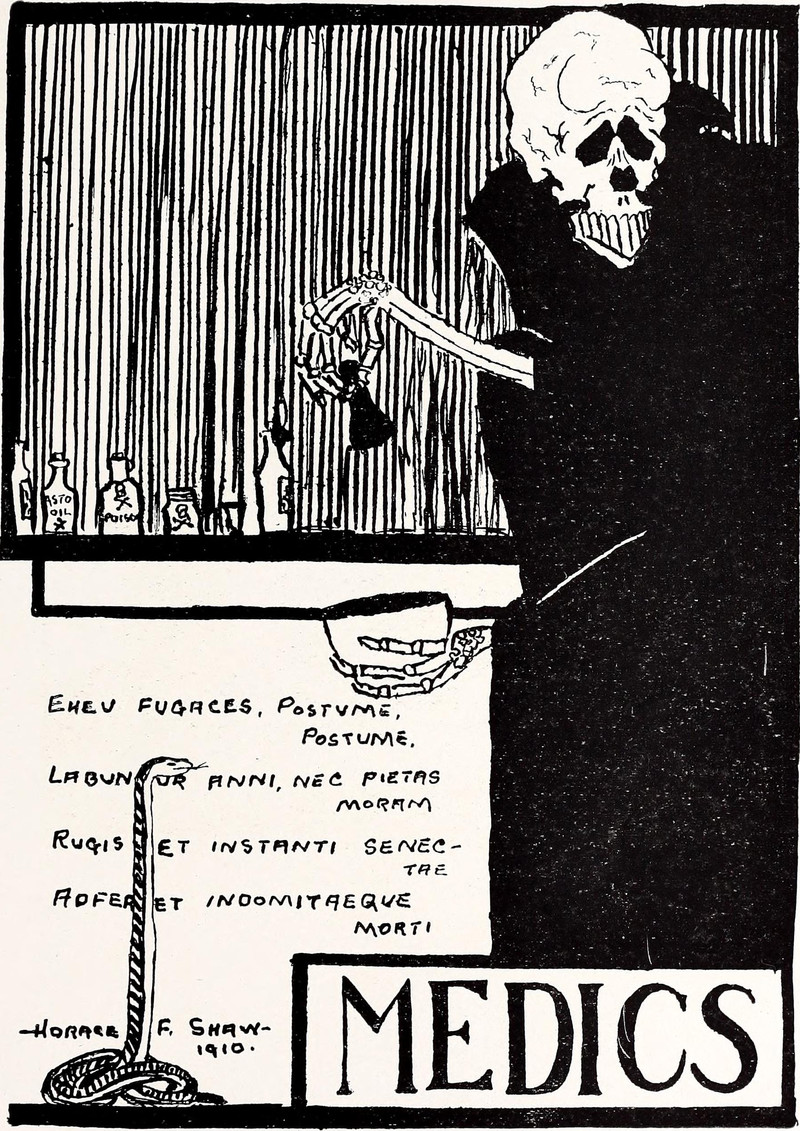 ASTO
OIL
POISON
EHEV FUGACES, POSTVME,
POSTUME,
LABUNTUR ANNI, NEC PIETAS
MORAM
RUGIS ET INSTANTI SENEC-
TAE
ADFERET INDOMITAEQUE
MORTI
-HORACE F. SHAW-
1910.
MEDICS